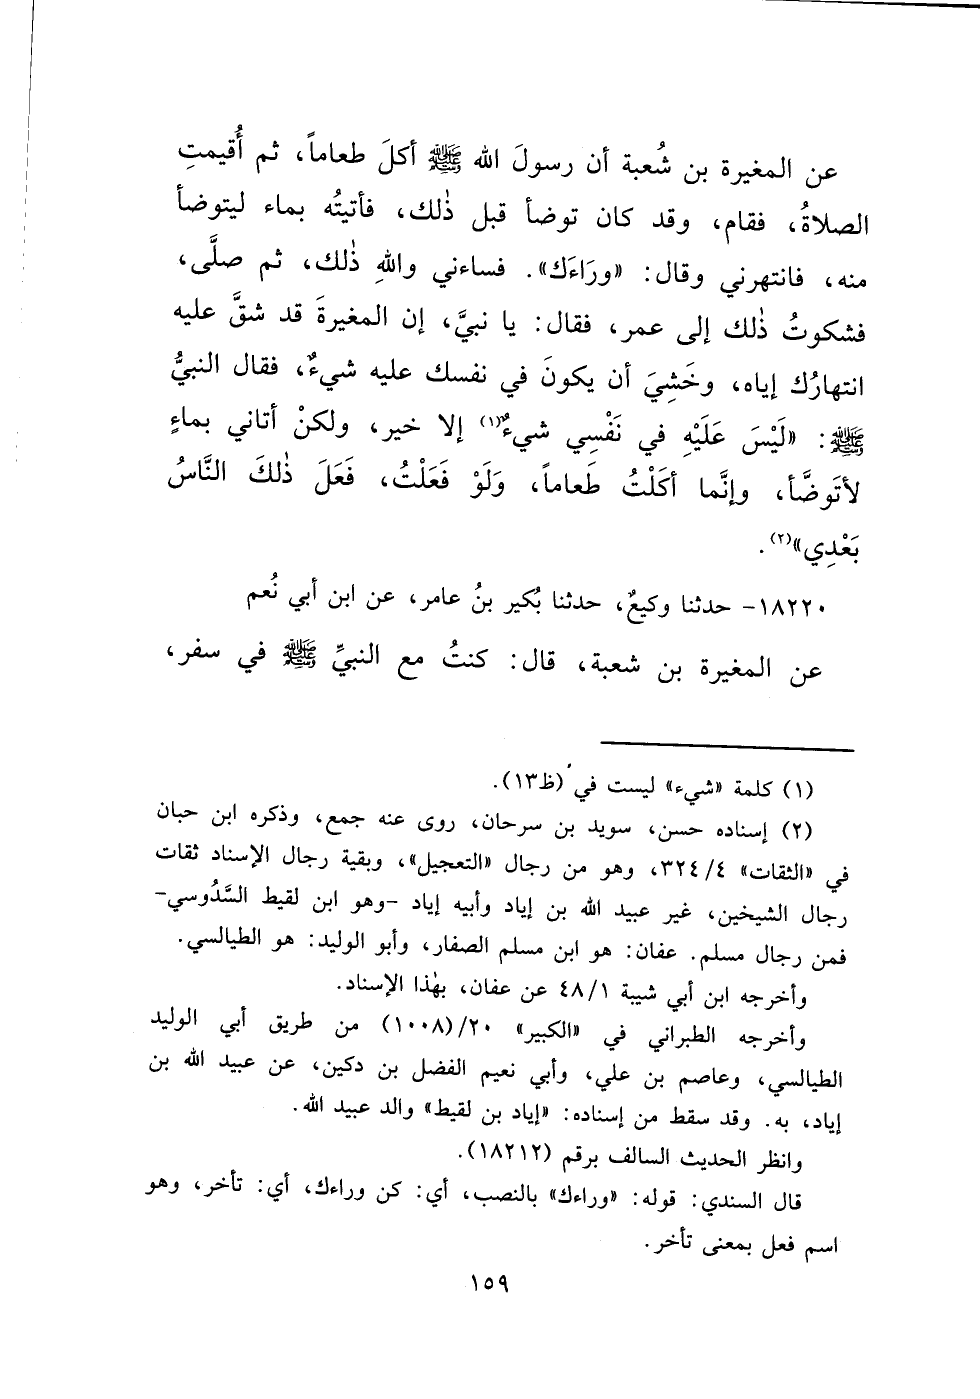 عن المغيرة بن شُعبة أن رسولَ الله ﷺ أكلَ طعاماً، ثم أُقيمتِ
الصلاةُ، فقام، وقد كان توضأ قبل ذٰلك، فأتيتُه بماء ليتوضأ
منه، فانتهرني وقال: «ورَاءَك». فساءني واللهِ ذٰلك، ثم صلَّى،
فشكوتُ ذٰلك إلى عمر، فقال: يا نبيَّ، إن المغيرةَ قد شقَّ عليه
انتهارُك إياه، وخَشِيَ أن يكونَ في نفسك عليه شيءٌ، فقال النبيُّ
ﷺ: «لَيْسَ عَلَيْهِ في نَفْسِي شيءٌ(١) إلا خير، ولكنْ أتاني بماءٍ
لأتَوضَّأ، وإنَّما أكَلْتُ طَعاماً، وَلَوْ فَعَلْتُ، فَعَلَ ذٰلكَ النَّاسُ
بَعْدِي»(٢).
١٨٢٢٠- حدثنا وكيعٌ، حدثنا بُكير بنُ عامر، عن ابن أبي نُعم
عن المغيرة بن شعبة، قال: كنتُ مع النبيِّ ﷺ في سفر،
(١) كلمة «شيء» ليست في (ظ١٣).
(٢) إسناده حسن، سويد بن سرحان، روى عنه جمع، وذكره ابن حبان
في «الثقات» ٣٢٤/٤، وهو من رجال «التعجيل»، وبقية رجال الإسناد ثقات
رجال الشيخين، غير عبيد الله بن إياد وأبيه إياد -وهو ابن لقيط السَّدُوسي-
فمن رجال مسلم. عفان: هو ابن مسلم الصفار، وأبو الوليد: هو الطيالسي.
وأخرجه ابن أبي شيبة ٤٨/١ عن عفان، بهٰذا الإسناد.
وأخرجه الطبراني في «الكبير» ٢٠/(١٠٠٨) من طريق أبي الوليد
الطيالسي، وعاصم بن علي، وأبي نعيم الفضل بن دكين، عن عبيد الله بن
إياد، به. وقد سقط من إسناده: «إياد بن لقيط» والد عبيد الله.
وانظر الحديث السالف برقم (١٨٢١٢).
قال السندي: قوله: «وراءك» بالنصب، أي: كن وراءك، أي: تأخر، وهو
اسم فعل بمعنى تأخر.
١٥٩